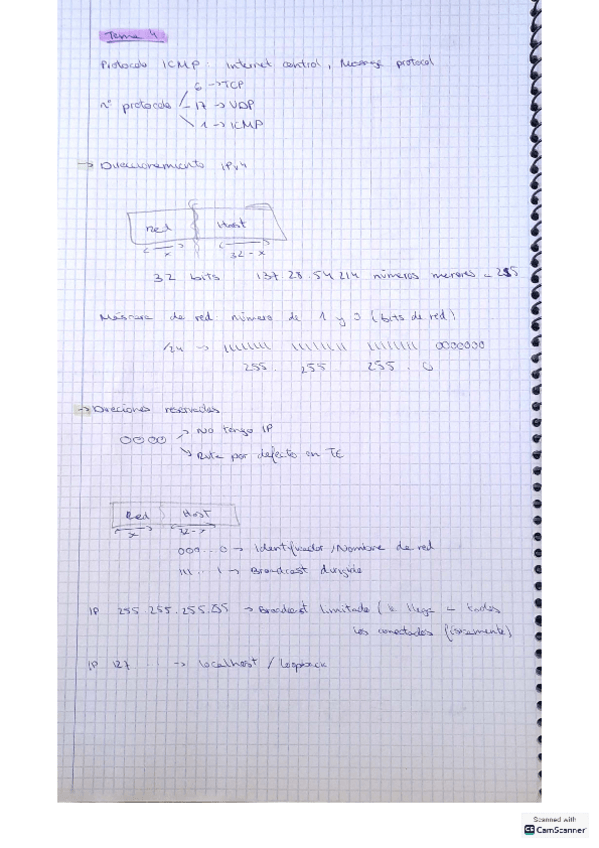 Tema 4
Protocolo ICMP: Internet control, Message protocol
6 → TCP
nº protocolo 17 → UDP
1 → ICMP
→ Direccionamiento IPv4
Red Host
x 32-x
32 bits 137 28.54 214 números menores = 255
Máscara de red: número de 1 y 0 (bits de red)
/24 → 11111111 11111111 11111111 0000000
255 255 255. 0
→ Direciones reservadas
0000 → No tengo IP
↘ Ruta por defecto en TE
Red Host
x 32-x
000...0 → Identificador / Nombre de red
111...1 → Broadcast dirigido
IP 255.255.255.255 → Broadcast limitado ( llega a todos
los conectados (físicamente)
IP 127 . . . → localhost / loopback
Scanned with
CS CamScanner